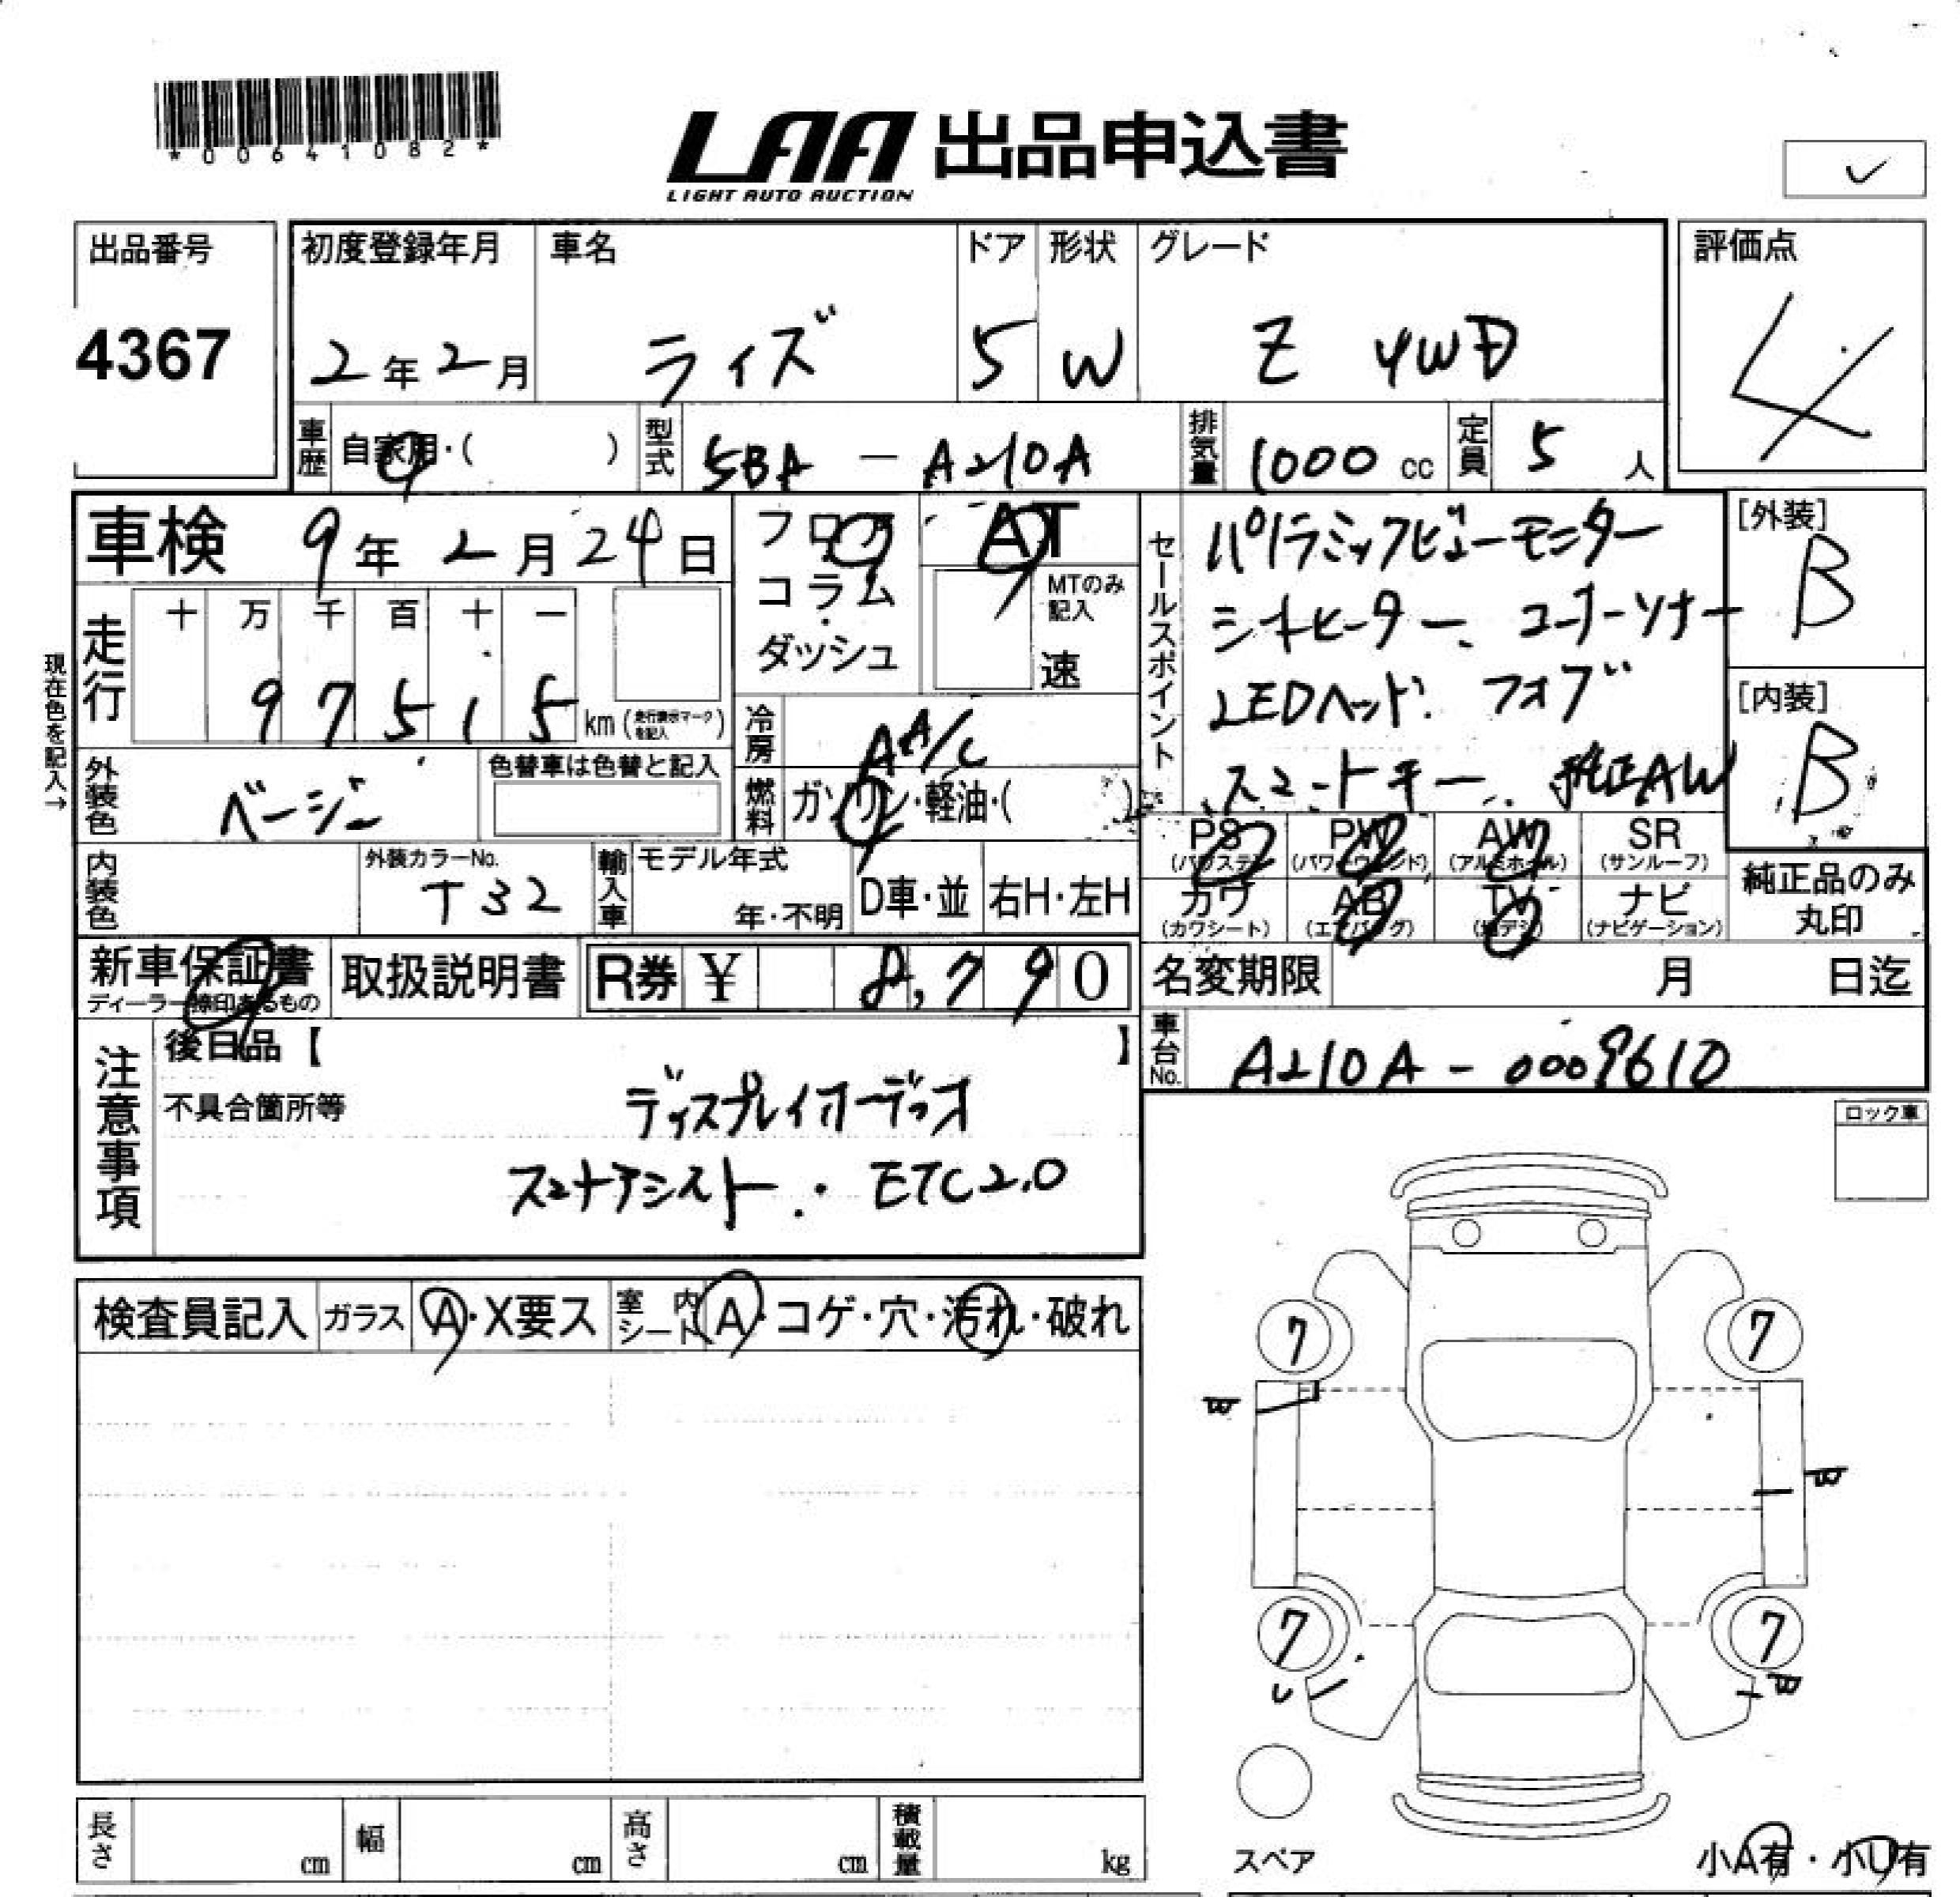 *00641082*
LAA 出品申込書
LIGHT AUTO AUCTION
出品番号
4367
初度登録年月
2年2月
車名
ライズ
ドア
5
形状
W
グレード
Z 4WD
評価点
4
車歴
自家用・( )
型式
5BA - A210A
排気量
1000 cc
定員
5 人
車検 9年2月24日
フロア
コラム
ダッシュ
AT
MTのみ記入
速
セールスポイント
パノラミックビューモニター
シートヒーター、コーナーソナー
LEDヘッド、フォグ
スマートキー、純正AW
[外装]
B
[内装]
B
現在色を記入→
走行
十 万 千 百 十 一
97515 km (走行表示マークを記入)
冷房
AA/C
燃料
ガソリン・軽油・( )
外装色
ベージュ
色替車は色替と記入
内装色
外装カラーNo.
T32
輸入車
モデル年式
年・不明
D車・並
右H・左H
PS
(パワステ)
PW
(パワーウィンド)
AW
(アルミホイル)
SR
(サンルーフ)
カワ
(カワシート)
AB
(エアバッグ)
TV
(地デジ)
ナビ
(ナビゲーション)
純正品のみ
丸印
新車保証書
ディーラー捺印あるもの
取扱説明書
R券 ¥ 8,790
名変期限 月 日迄
注意事項
後日品【 】
不具合箇所等
ディスプレイオーディオ
スマートアシスト・ETC2.0
車台No.
A210A-0009610
ロック車
検査員記入
ガラス
A・X要ス
室内シート
A・コゲ・穴・汚れ・破れ
7
7
W
W
7
7
U
W
スペア
小A有・小U有
長さ cm
幅 cm
高さ cm
積載量 kg